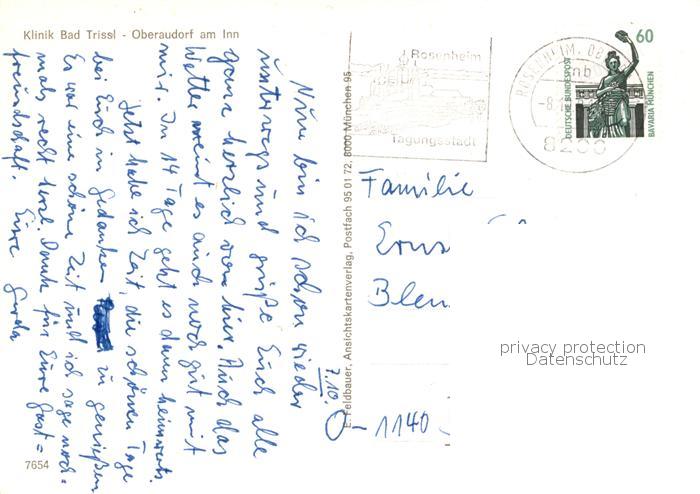 Klinik Bad Trissl - Oberaudorf am Inn
7.10.
Nun bin ich schon wieder
unterwegs und grüße Euch alle
ganz herzlich von hier. Auch das
Wetter meint es auch noch gut mit
mir. In 14 Tage geht es dann heimwärts.
Jetzt habe ich Zeit, die schönen Tage
bei Euch in Gedanken zu genießen
Es war eine schöne Zeit und ich sage noch-
mals recht herzl. Dank für Eure Gast=
freundschaft. Eure Gerda
7654
E. Feldbauer, Ansichtskartenverlag, Postfach 95 01 72, 8000 München 95
Rosenheim
Tagungsstadt
ROSENHEIM, OB
nb
-8.
8200
60
DEUTSCHE BUNDESPOST
BAVARIA MÜNCHEN
Familie
Erns
Blen
O-1140
privacy protection
Datenschutz